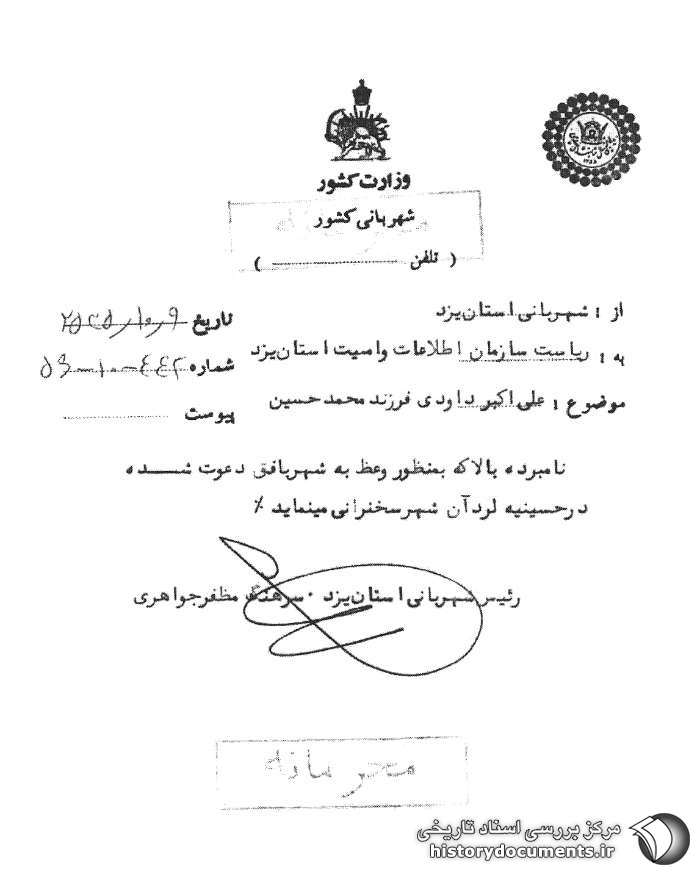 وزارت کشور
شهربانی کشور
محرمانه
( تلفن )
از : شهربانی استان یزد
به : ریاست سازمان اطلاعات وامنیت استان یزد
موضوع : علی اکبر داودی فرزند محمدحسین
تاریخ
شماره
پیوست
نامبرده بالاکه بمنظور وعظ به شهربافق دعوت شده
درحسینیه لردآن شهرسخنرانی مینماید ٪
رئیس شهربانی استان یزد . سرهنگ مظفرجواهری
محرمانه
مرکز بررسی اسناد تاریخی
historydocuments.ir